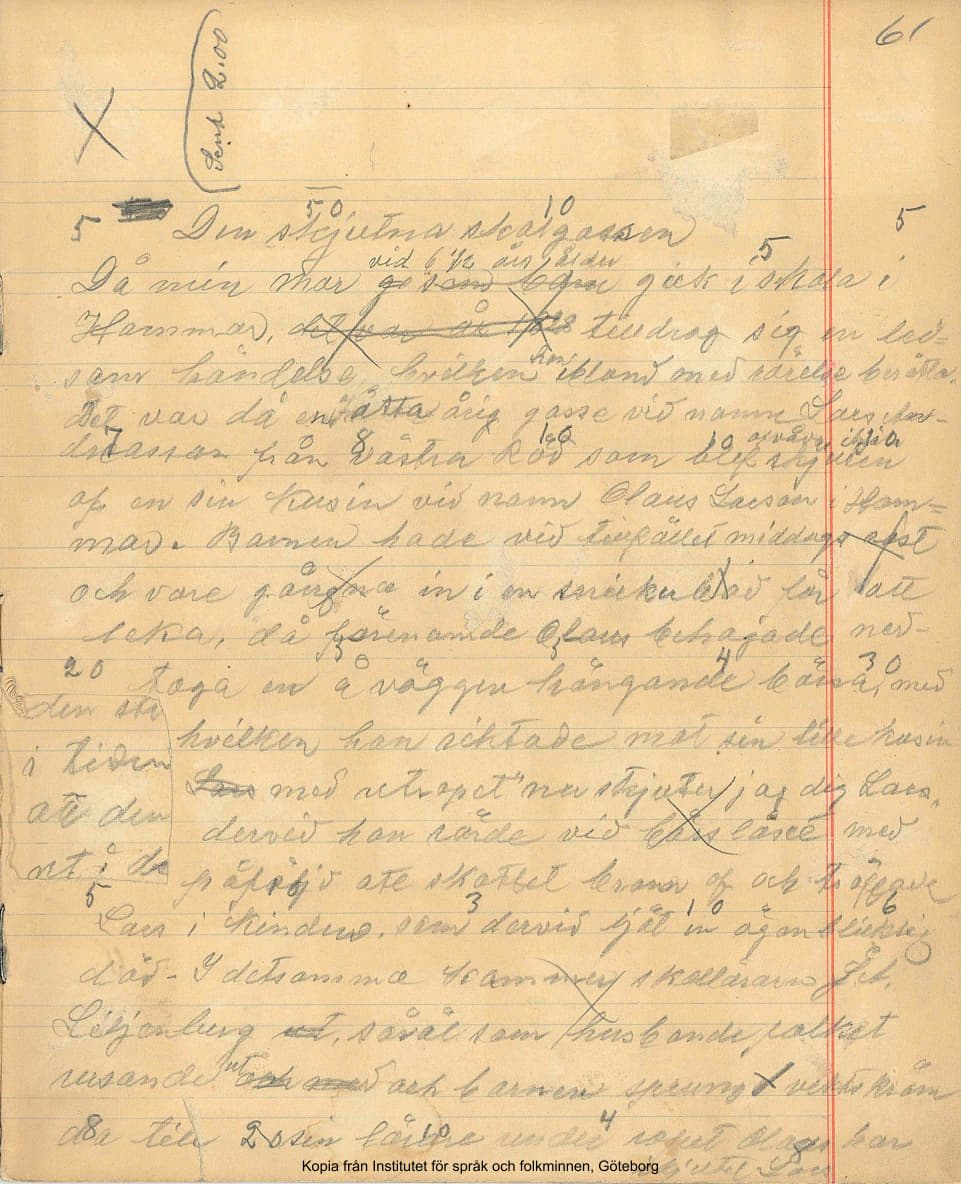 61
Send 2.00
5 50 10 5
Den skjutna skolgossen
5
vid 6 1/2 års ålder
Då min mor gick i skola i
Hammar, det var år tilldrog sig en led-
sam händelse, hvilken hon ibland med rörelse berätta.
Det var då en åtta årig gosse vid namn Lars An-
7 8 10 10 10
dreasson från Västra Röd som blef skjuten
af en sin kusin vid namn Olaus Larson i Ham-
mar. Barnen hade vid tillfället middags rast
och vore gångna in i en snickarbod för att
leka, då förenämde Olaus behagade ned-
20 3 3 4 30
taga en å väggen hängande bössa, med
den
hvilken han siktade mot sin lille kusin
i tiden
Lars med utropet "nu skjuter jag dig Lars,
att den
dervid han rörde vid bösslåset med
påföljd att skottet brann af och träffade
5 3 10 6
Lars i kinden, som dervid ljöt in ögonblicklig
död - I detsamma kommer skolläraren
Liljenberg ut, såväl som husbonde folket
rusande ut och barnen sprungo vettskräm
8 20 10 4
da till sin lärare under ropet Olaus har
skjutit Lars
8
Kopia från Institutet för språk och folkminnen, Göteborg